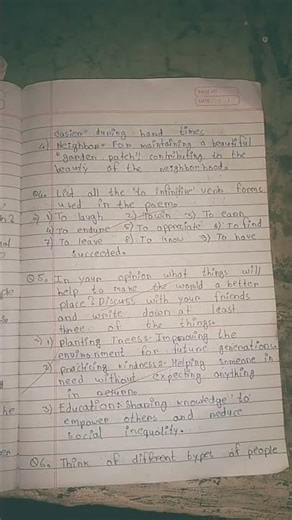 PAGE NO.
DATE
easier" during hard times
4) Neighbor= For maintaining a beautiful
"garden patch", contributing to the
beauty of the neighborhood.
Q4. List all the 'to infinitive' verb forms
used in the poem.
1) To laugh 2) To win 3) To earn
4) To endure 5) To appreciate 6) To find
7) To leave 8) To know 9) To have
succeeded.
Q5. In your opinion what things will
help to make the world a better
place? Discuss with your friends
and write down at least
three of the things.
1) Planting Treess- Improving the
environment for future generations.
2) practicing kindness- Helping someone in
need without expecting anything
in return.
3) Education: Sharing knowledge to
empower others and reduce
social inequality.
Q6. Think of different types of people